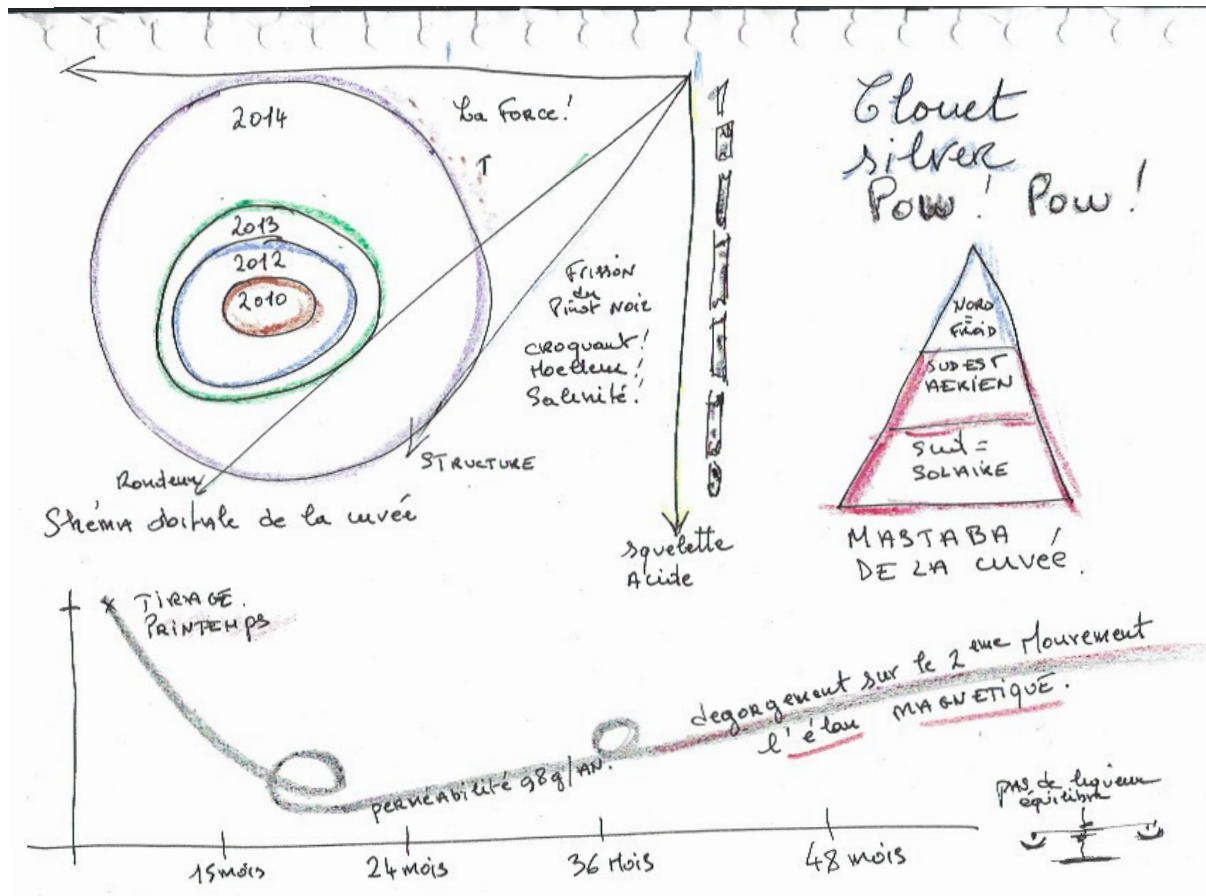 2014
2013
2012
2010
La Force!
T
Frisson
du
Pinot Noir
CROQUANT!
Moelleux!
Salinité!
STRUCTURE
Rondeur
squelette
Acide
Clouet
silver
Pow! Pow!
NORD
=
FROID
SUD EST
AERIEN
SUD =
SOLAIRE
MASTABA
DE LA cuvée.
de la cuvée
TIRAGE.
PRINTEMPS
perméabilité 98g/AN.
degorgement sur le 2eme Mouvement
l'élan MAGNETIQUE.
pas de liqueur
15 mois
24 mois
36 Mois
48 mois